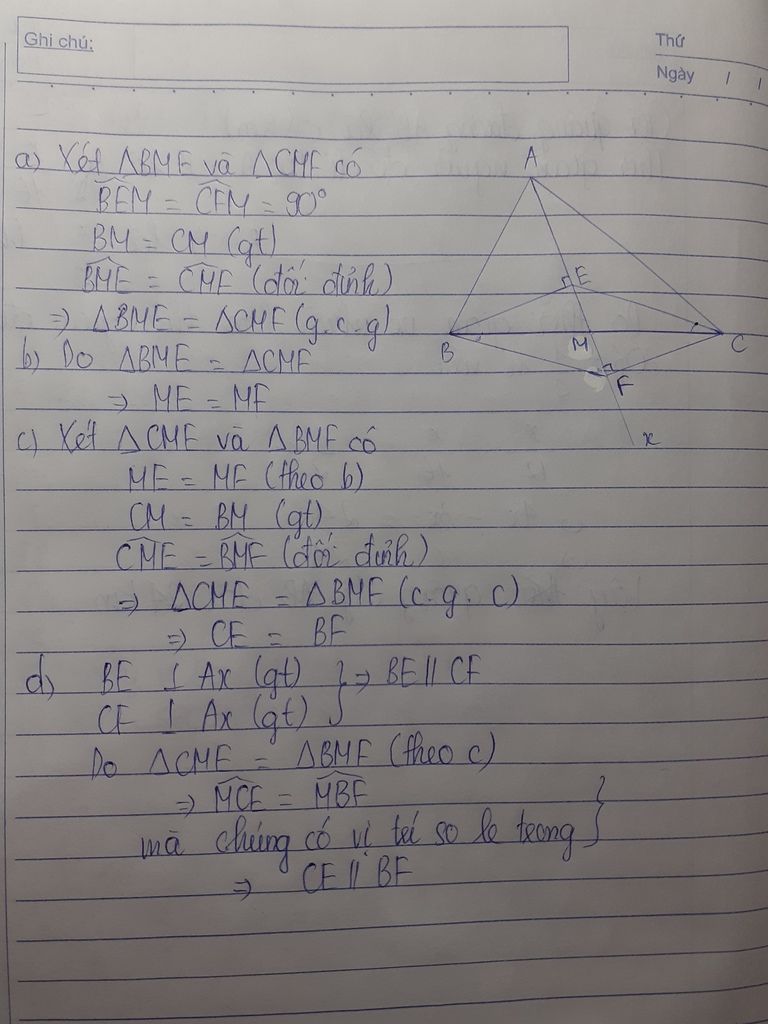 Ghi chú:
Thứ
Ngày / /
a) Xét ΔBME và ΔCMF có
\widehat{BEM} = \widehat{CFM} = 90°
BM = CM (gt)
\widehat{BME} = \widehat{CMF} (đối đỉnh)
=> ΔBME = ΔCMF (g.c.g)
b) Do ΔBME = ΔCMF
=> ME = MF
c) Xét ΔCME và ΔBMF có
ME = MF (theo b)
CM = BM (gt)
\widehat{CME} = \widehat{BMF} (đối đỉnh)
=> ΔCME = ΔBMF (c.g.c)
=> CE = BF
d) BE ⊥ Ax (gt) } => BE // CF
CF ⊥ Ax (gt)
Do ΔCME = ΔBMF (theo c)
=> \widehat{MCE} = \widehat{MBF}
mà chúng có vị trí so le trong }
=> CE // BF
A
E
B
M
C
F
x